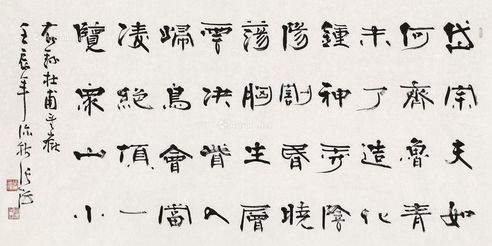 岱宗夫如
何齊魯青
未了造化
鍾神秀陰
陽割昏曉
蕩胸生層
雲決眥入
歸鳥會當
凌絕頂一
覽眾山小
杜甫望嶽
壬辰年深秋